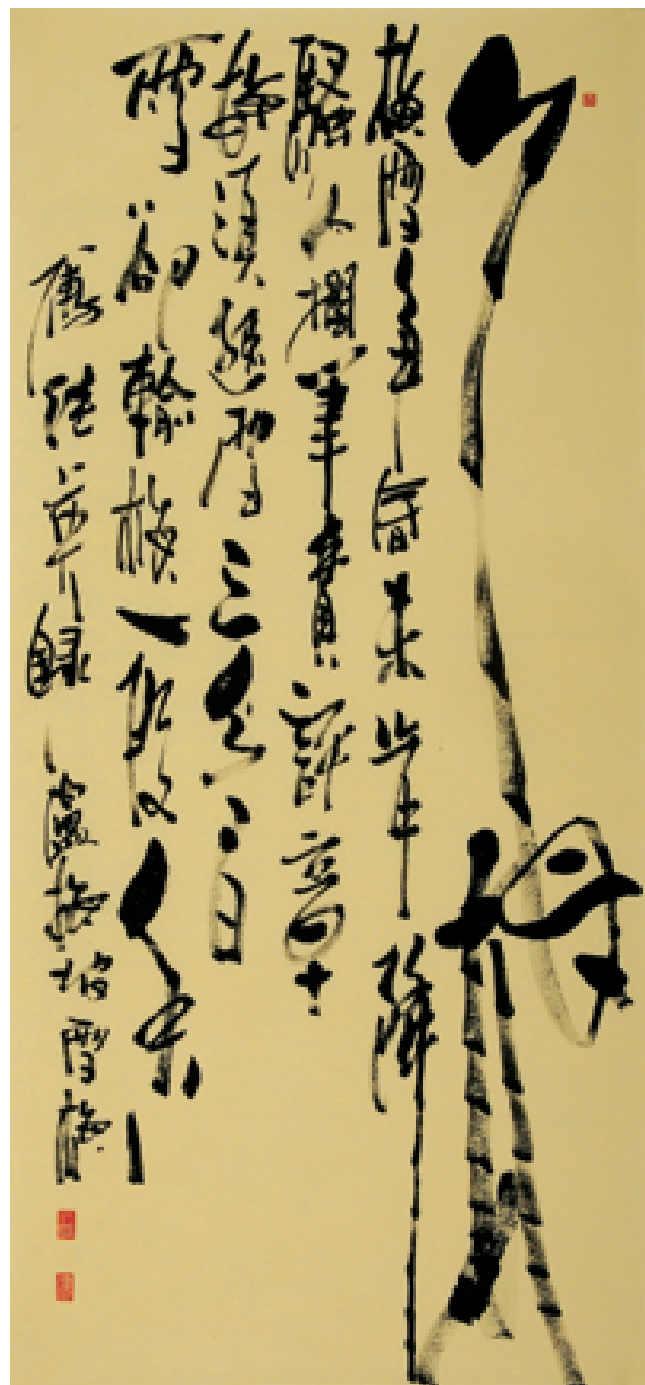 梅雪爭春未肯降
騷人擱筆費評章
梅須遜雪三分白
雪卻輸梅一段香
錄盧梅坡雪梅